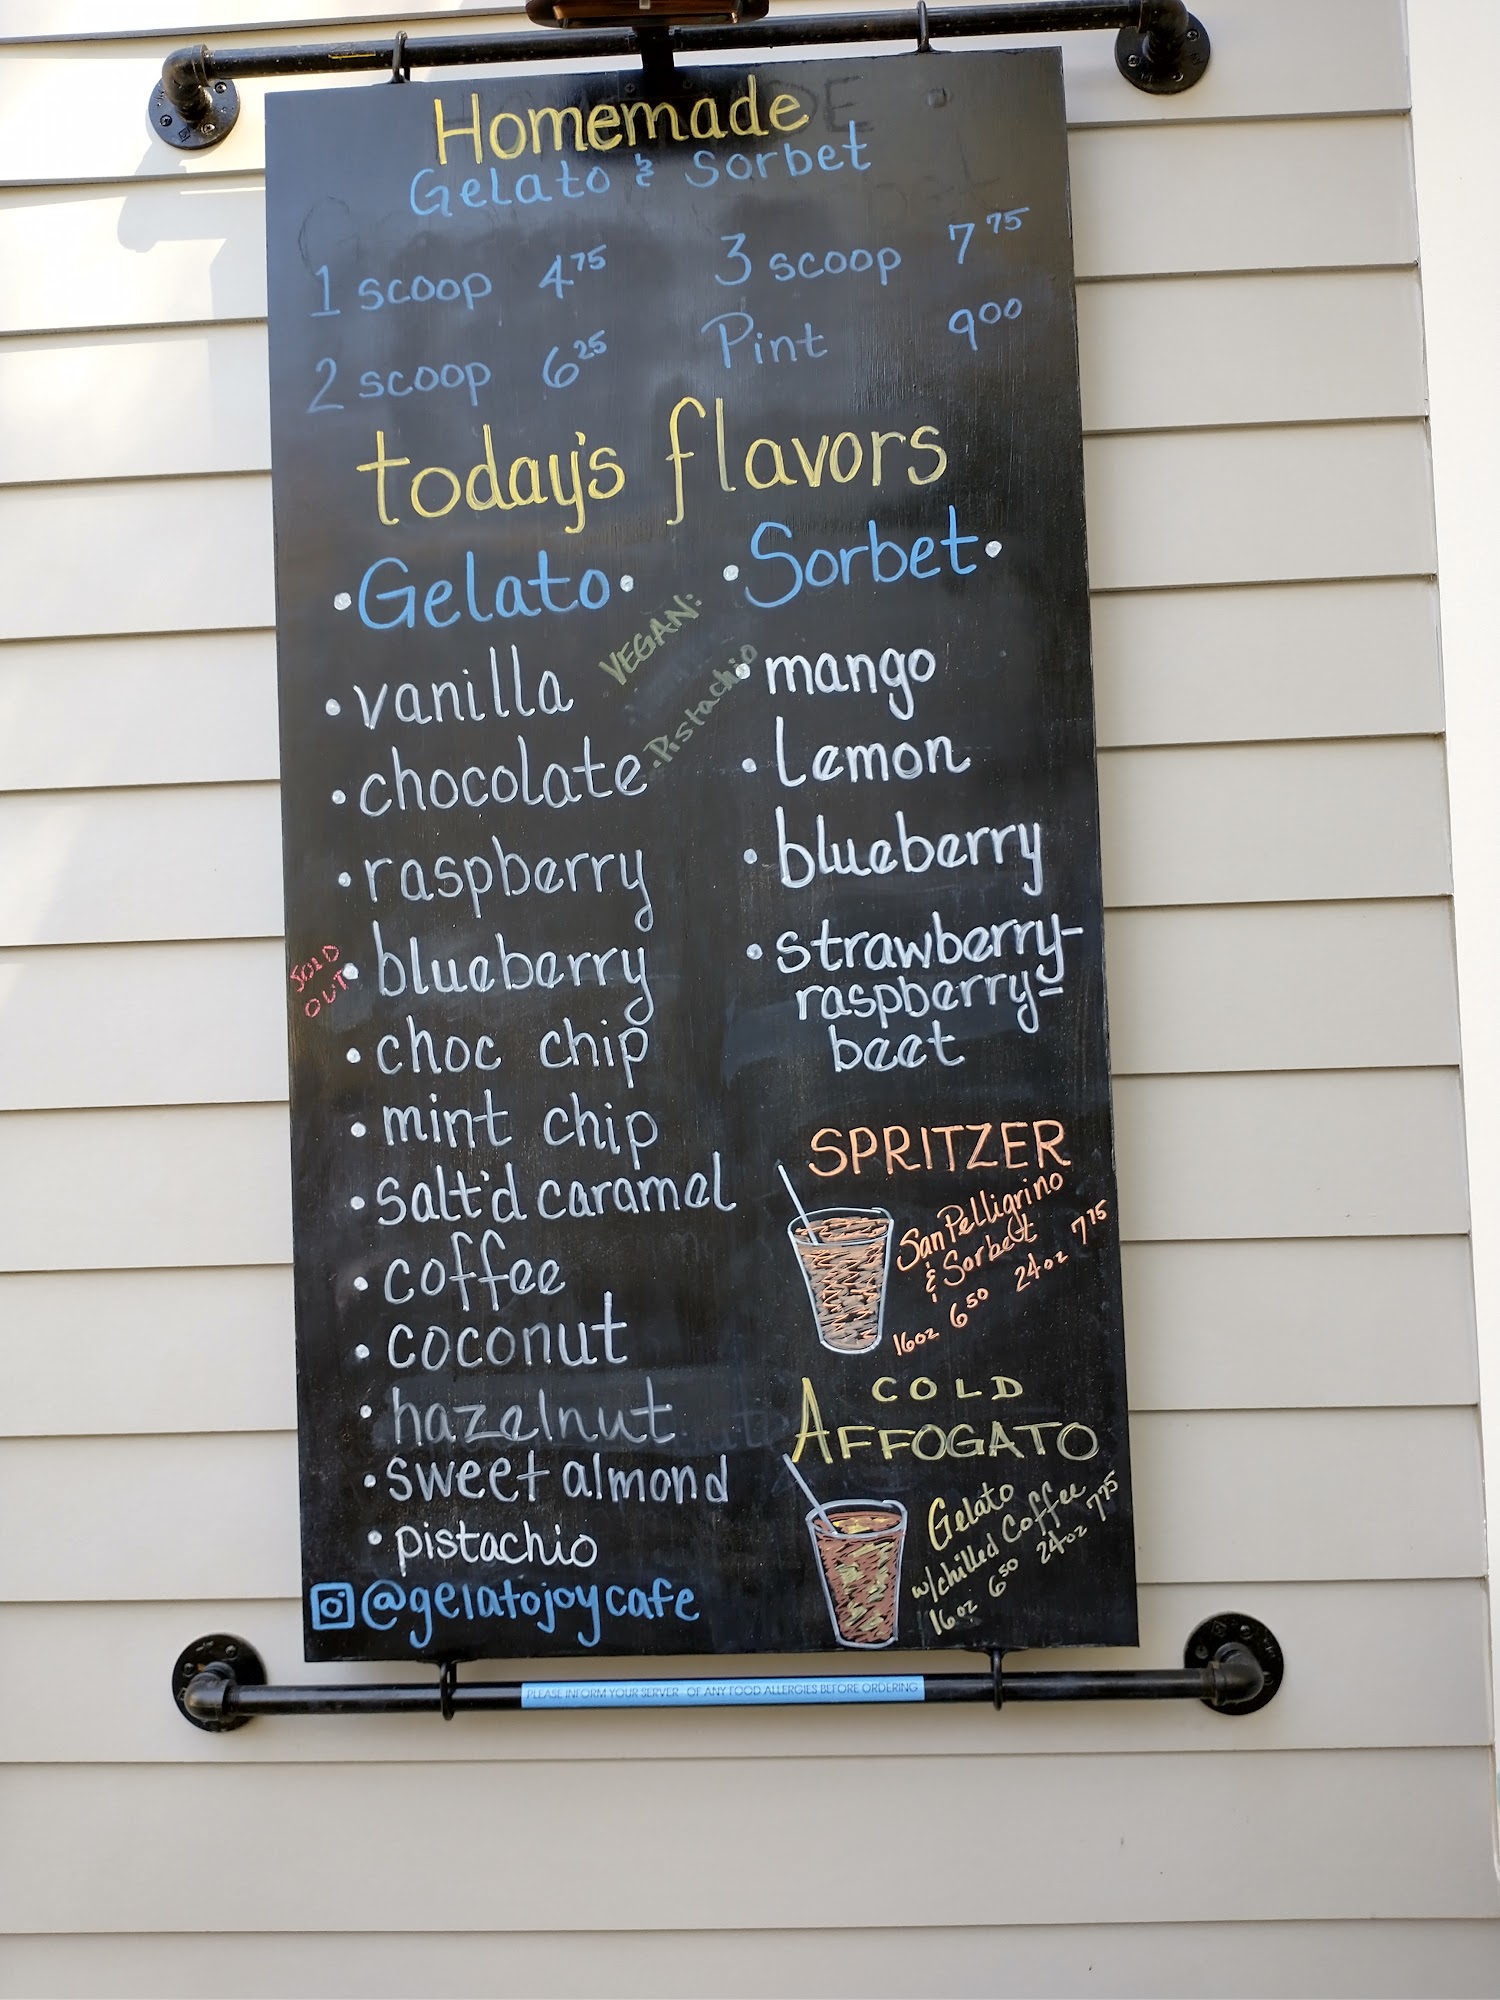 Homemade
Gelato & Sorbet
1 scoop 4 75
3 scoop 7 75
2 scoop 6 25
Pint 9 00
today's flavors
• Gelato •
VEGAN:
• Pistachio
• vanilla
• chocolate
• raspberry
SOLD
OUT
• blueberry
• choc chip
• mint chip
• salt'd caramel
• coffee
• coconut
• hazelnut
• sweet almond
• pistachio
@gelatojoycafe
• Sorbet •
• mango
• Lemon
• blueberry
• strawberry-
raspberry-
beet
SPRITZER
San Pelligrino
& Sorbett
16oz 6 50 24oz 7 75
COLD
AFFOGATO
Gelato
w/chilled Coffee
16oz 6 50 24oz 7 75
PLEASE INFORM YOUR SERVER OF ANY FOOD ALLERGIES BEFORE ORDERING